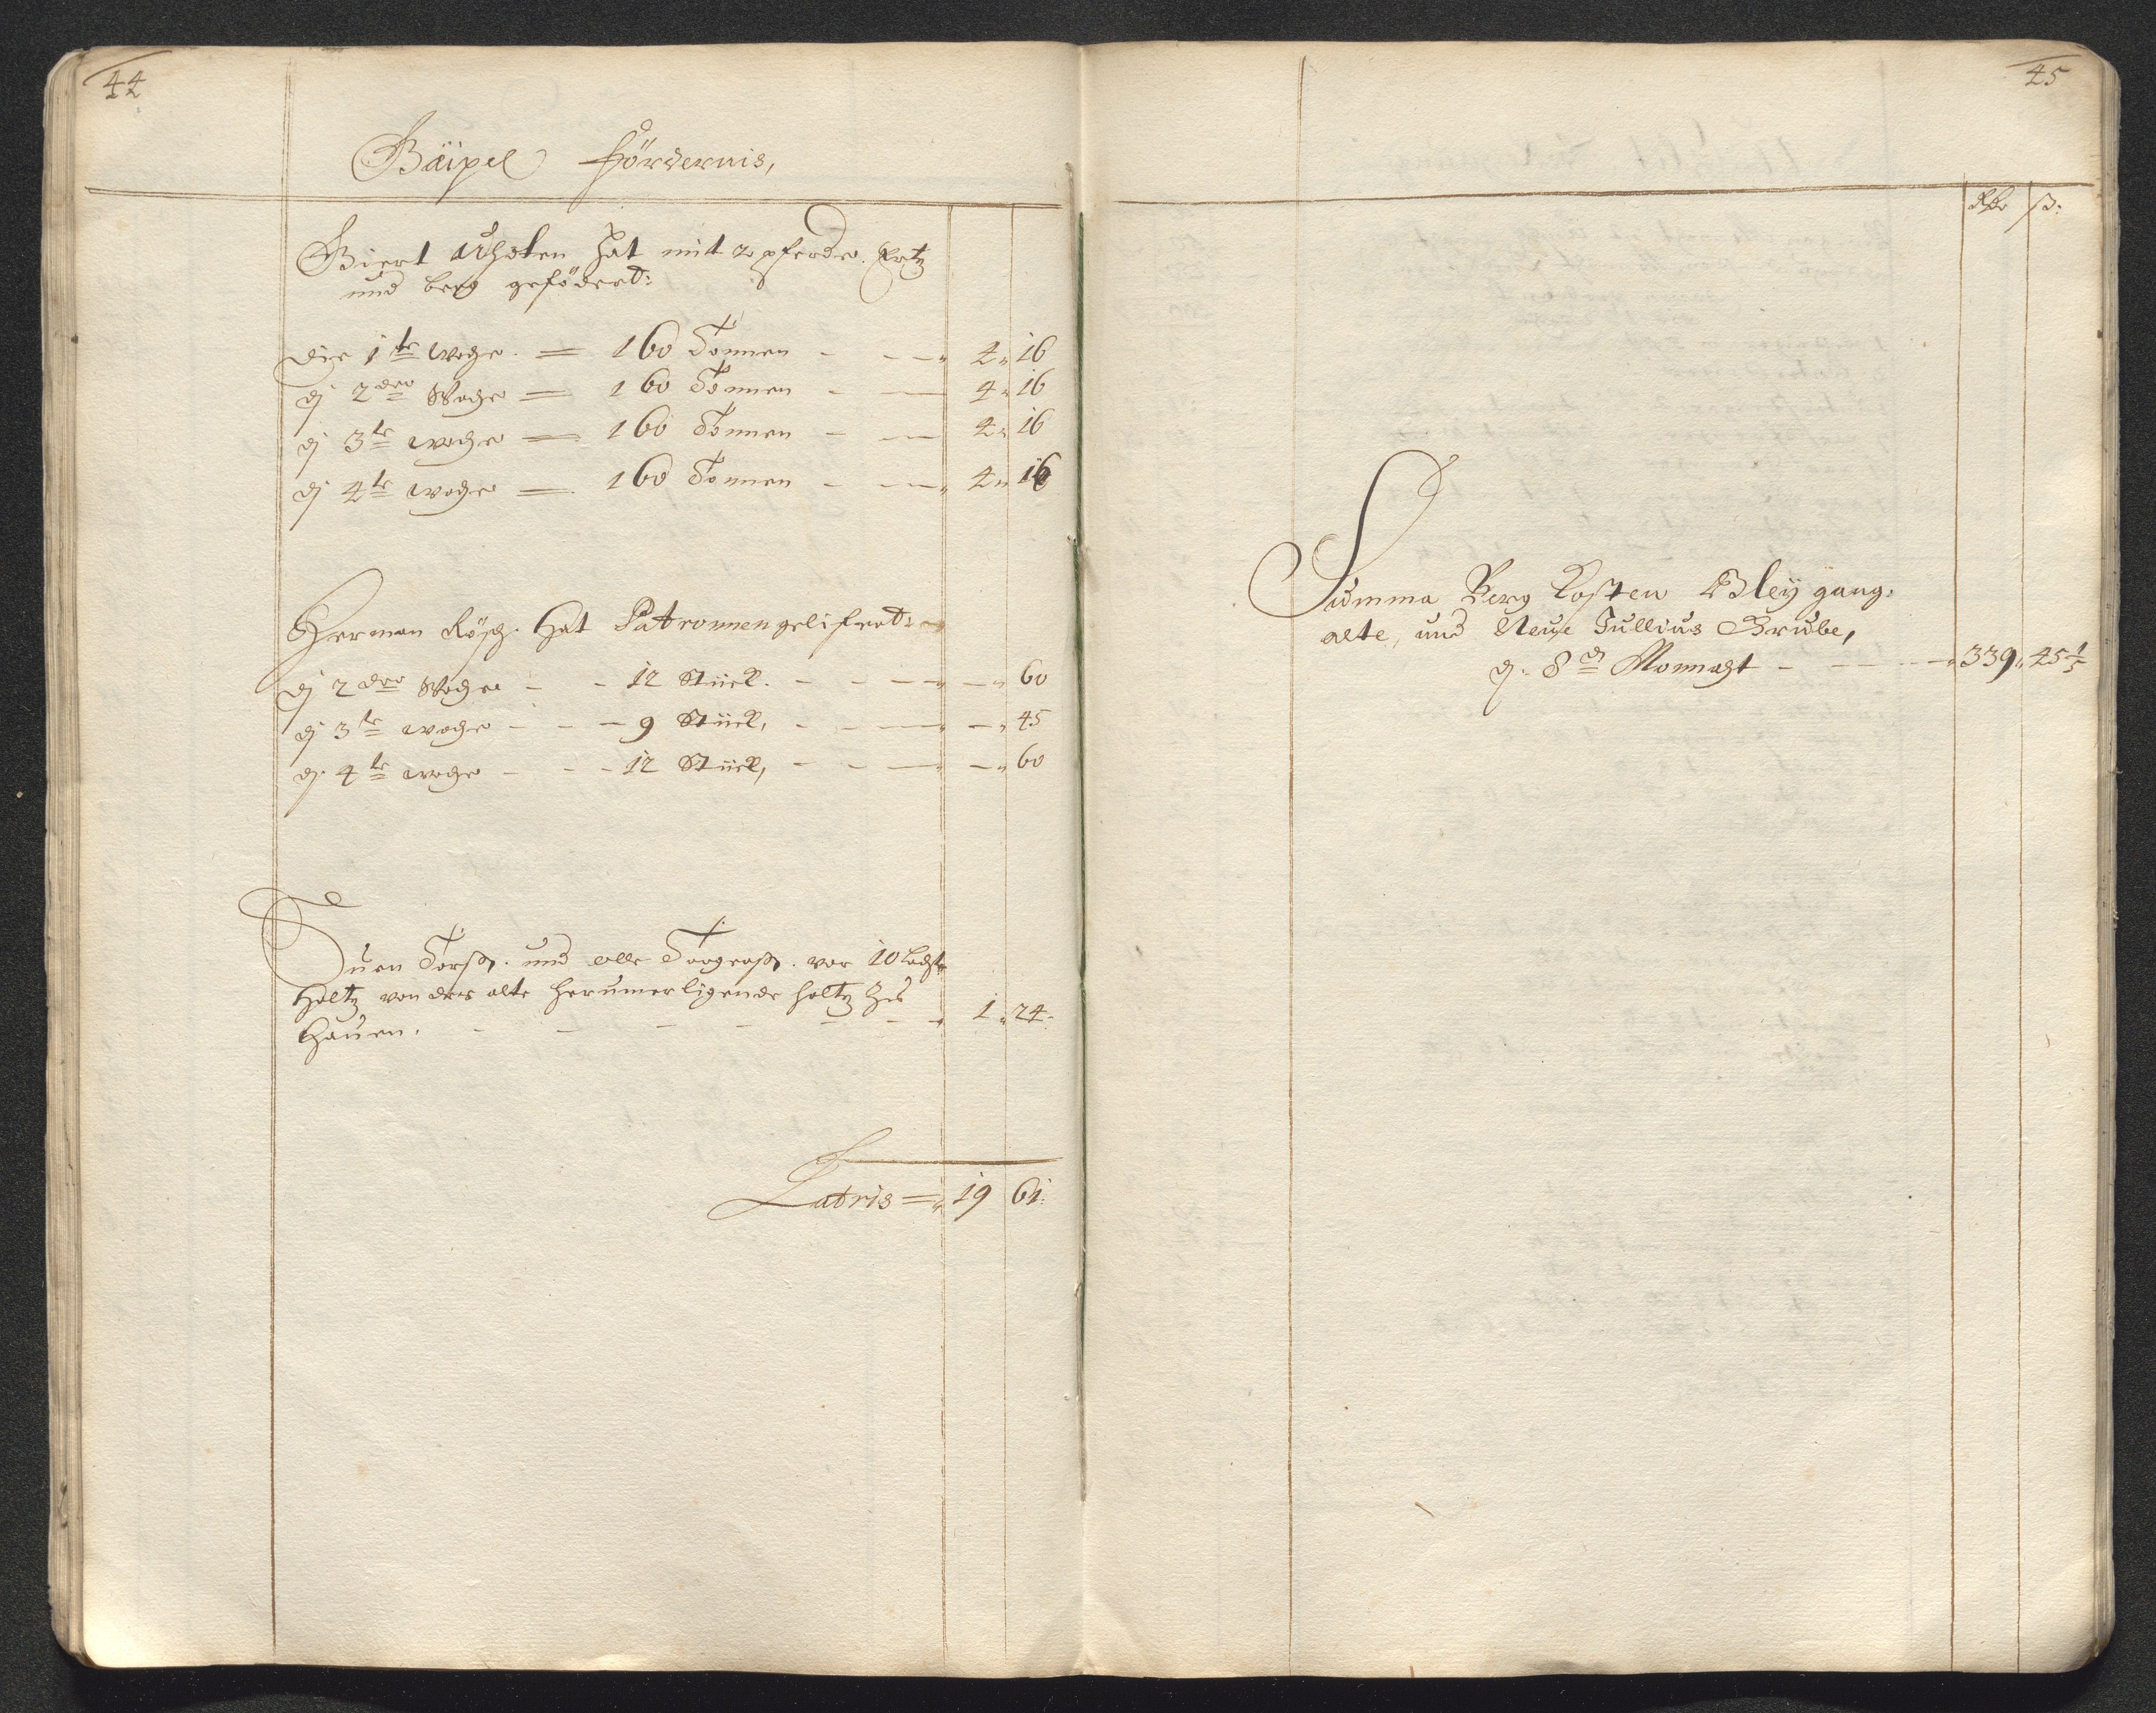 44
Gäipel Fördernis,
Giert Uholen hat mit 2 pferde. Ertz
und berg gefödert:
die 1te woche. = 160 Tonnen - - - 4 16
dj 2dre Woche = 160 Tonnen - - 4 16
dj 3te woche = 160 Tonnen - - 4 16
dj 4te woche = 160 Tonnen - - - 4 16
Herman Rösch. Hat Patronnen gelifert:
dj 2dre Woche - - 12 Stück. - - - - - 60
dj 3te woche - - - 9 Stück, - - - - 45
dj. 4te woche - - - 12 Stück, - - - - 60
Tuen Torss. und olle Torgerss. vor 10 lachter
holtz von der alte herumerligende holtz zu
hauen. - - - - - - 1 24
Latris = 19 61:
45
Rdr ß:
Summa Berg Kosten Bley gang.
alte, und Neue Jullius Grube,
dj. 8d Monnaht - - - - 339 45 1/5